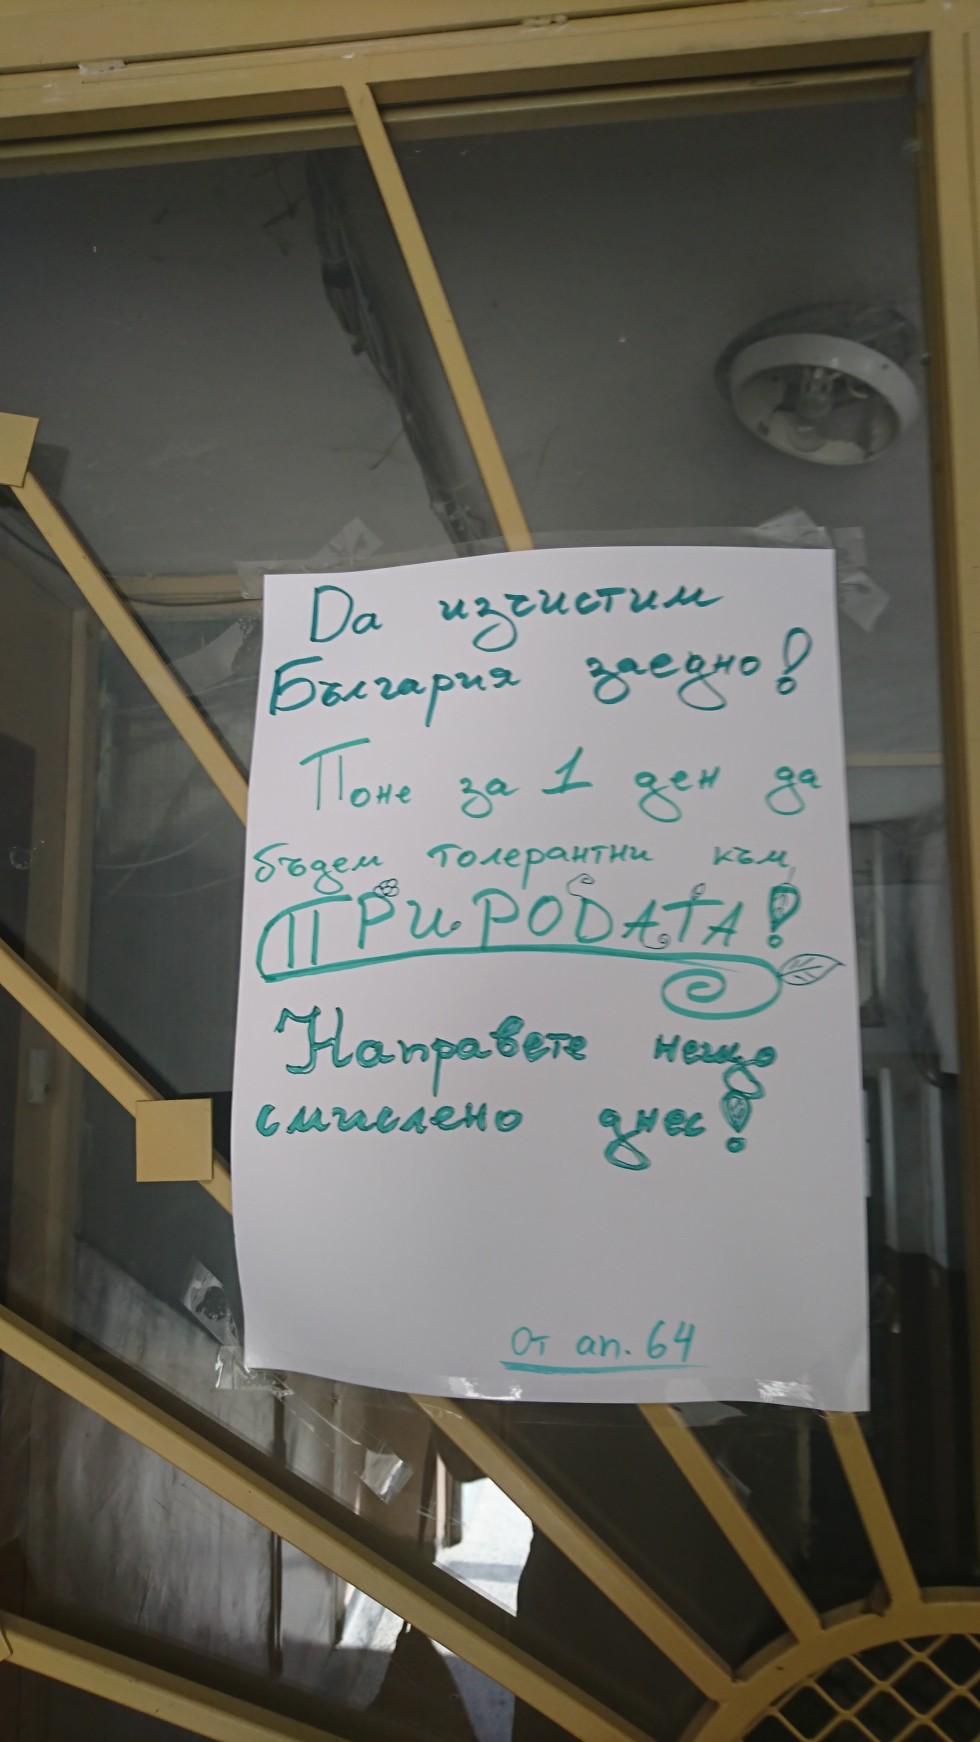 Да изчистим
България заедно!
Поне за 1 ден да
бъдем толерантни към
ПРИРОДАТА!
Направете нещо
смислено днес!
От ап. 64